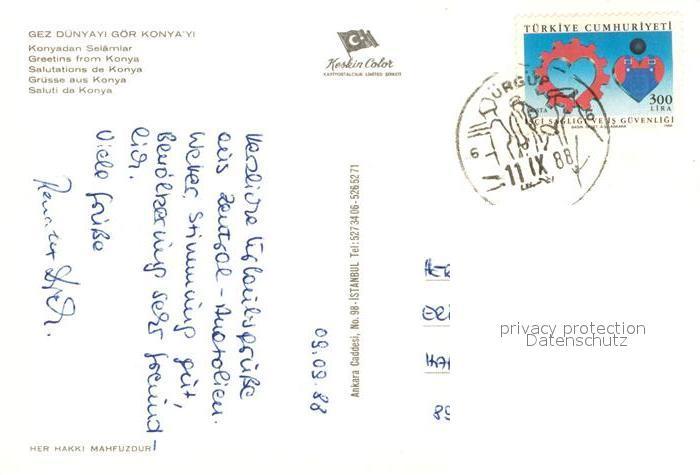 GEZ DÜNYAYI GÖR KONYA'YI
Konyadan Selâmlar
Greetins from Konya
Salutations de Konya
Grüsse aus Konya
Saluti da Konya
Keskin Color
KARTPOSTALCILIK LIMITED ŞİRKETİ
TÜRKİYE CUMHURİYETİ
300
LİRA
POSTA
İŞÇİ SAĞLIĞI VE İŞ GÜVENLİĞİ
ÜRGÜP
11 IX 88
09.09.88
Herzliche Urlaubsgrüße
aus Zentral-Anatolien.
Wetter, Stimmung gut,
Bevölkerung sehr freund-
lich.
Viele Grüße
Ankara Caddesi, No. 98-İSTANBUL Tel: 5273406-5265271
privacy protection
Datenschutz
HER HAKKI MAHFUZDUR